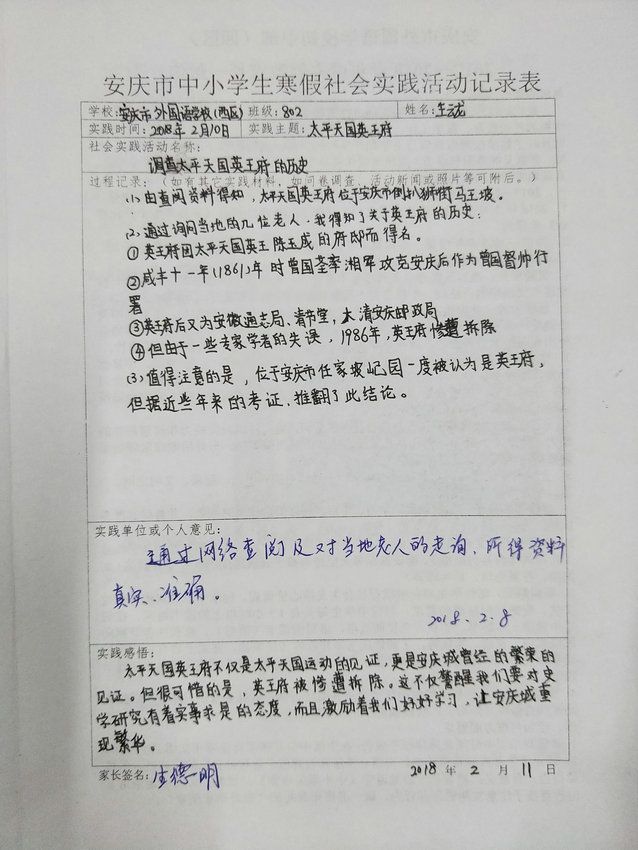 安庆市中小学生寒假社会实践活动记录表
学校：安庆市外国语学校(西区) 班级：802 姓名：
实践时间：2018年2月10日 实践主题：太平天国英王府
社会实践活动名称：
调查太平天国英王府的历史
过程记录：（如有其它实践材料，如问卷调查、活动新闻或照片等可附后。）
(1)由查阅资料得知，太平天国英王府位于安庆市倒扒狮街马王坡。
(2)通过询问当地的几位老人，我得知了关于英王府的历史：
①英王府因太平天国英王陈玉成的府邸而得名。
②咸丰十一年(1861)年时曾国荃率湘军攻克安庆后作为曾国督帅行
署
③英王府后又为安徽通志局、清节堂，大清安庆邮政局
④但由于一些专家学者的失误，1986年，英王府惨遭拆除
(3)值得注意的是，位于安庆市任家坡屺园一度被认为是英王府，
但据近些年来的考证，推翻了此结论。
实践单位或个人意见：
通过网络查阅及对当地老人的走询，所得资料
真实、准确。
2018.2.8
实践感悟：
太平天国英王府不仅是太平天国运动的见证，更是安庆城曾经的繁荣的
见证。但很可惜的是，英王府被惨遭拆除。这不仅警醒我们要对史
学研究有着实事求是的态度，而且激励着我们好好学习，让安庆城重
现繁华。
家长签名： 2018年2月11日